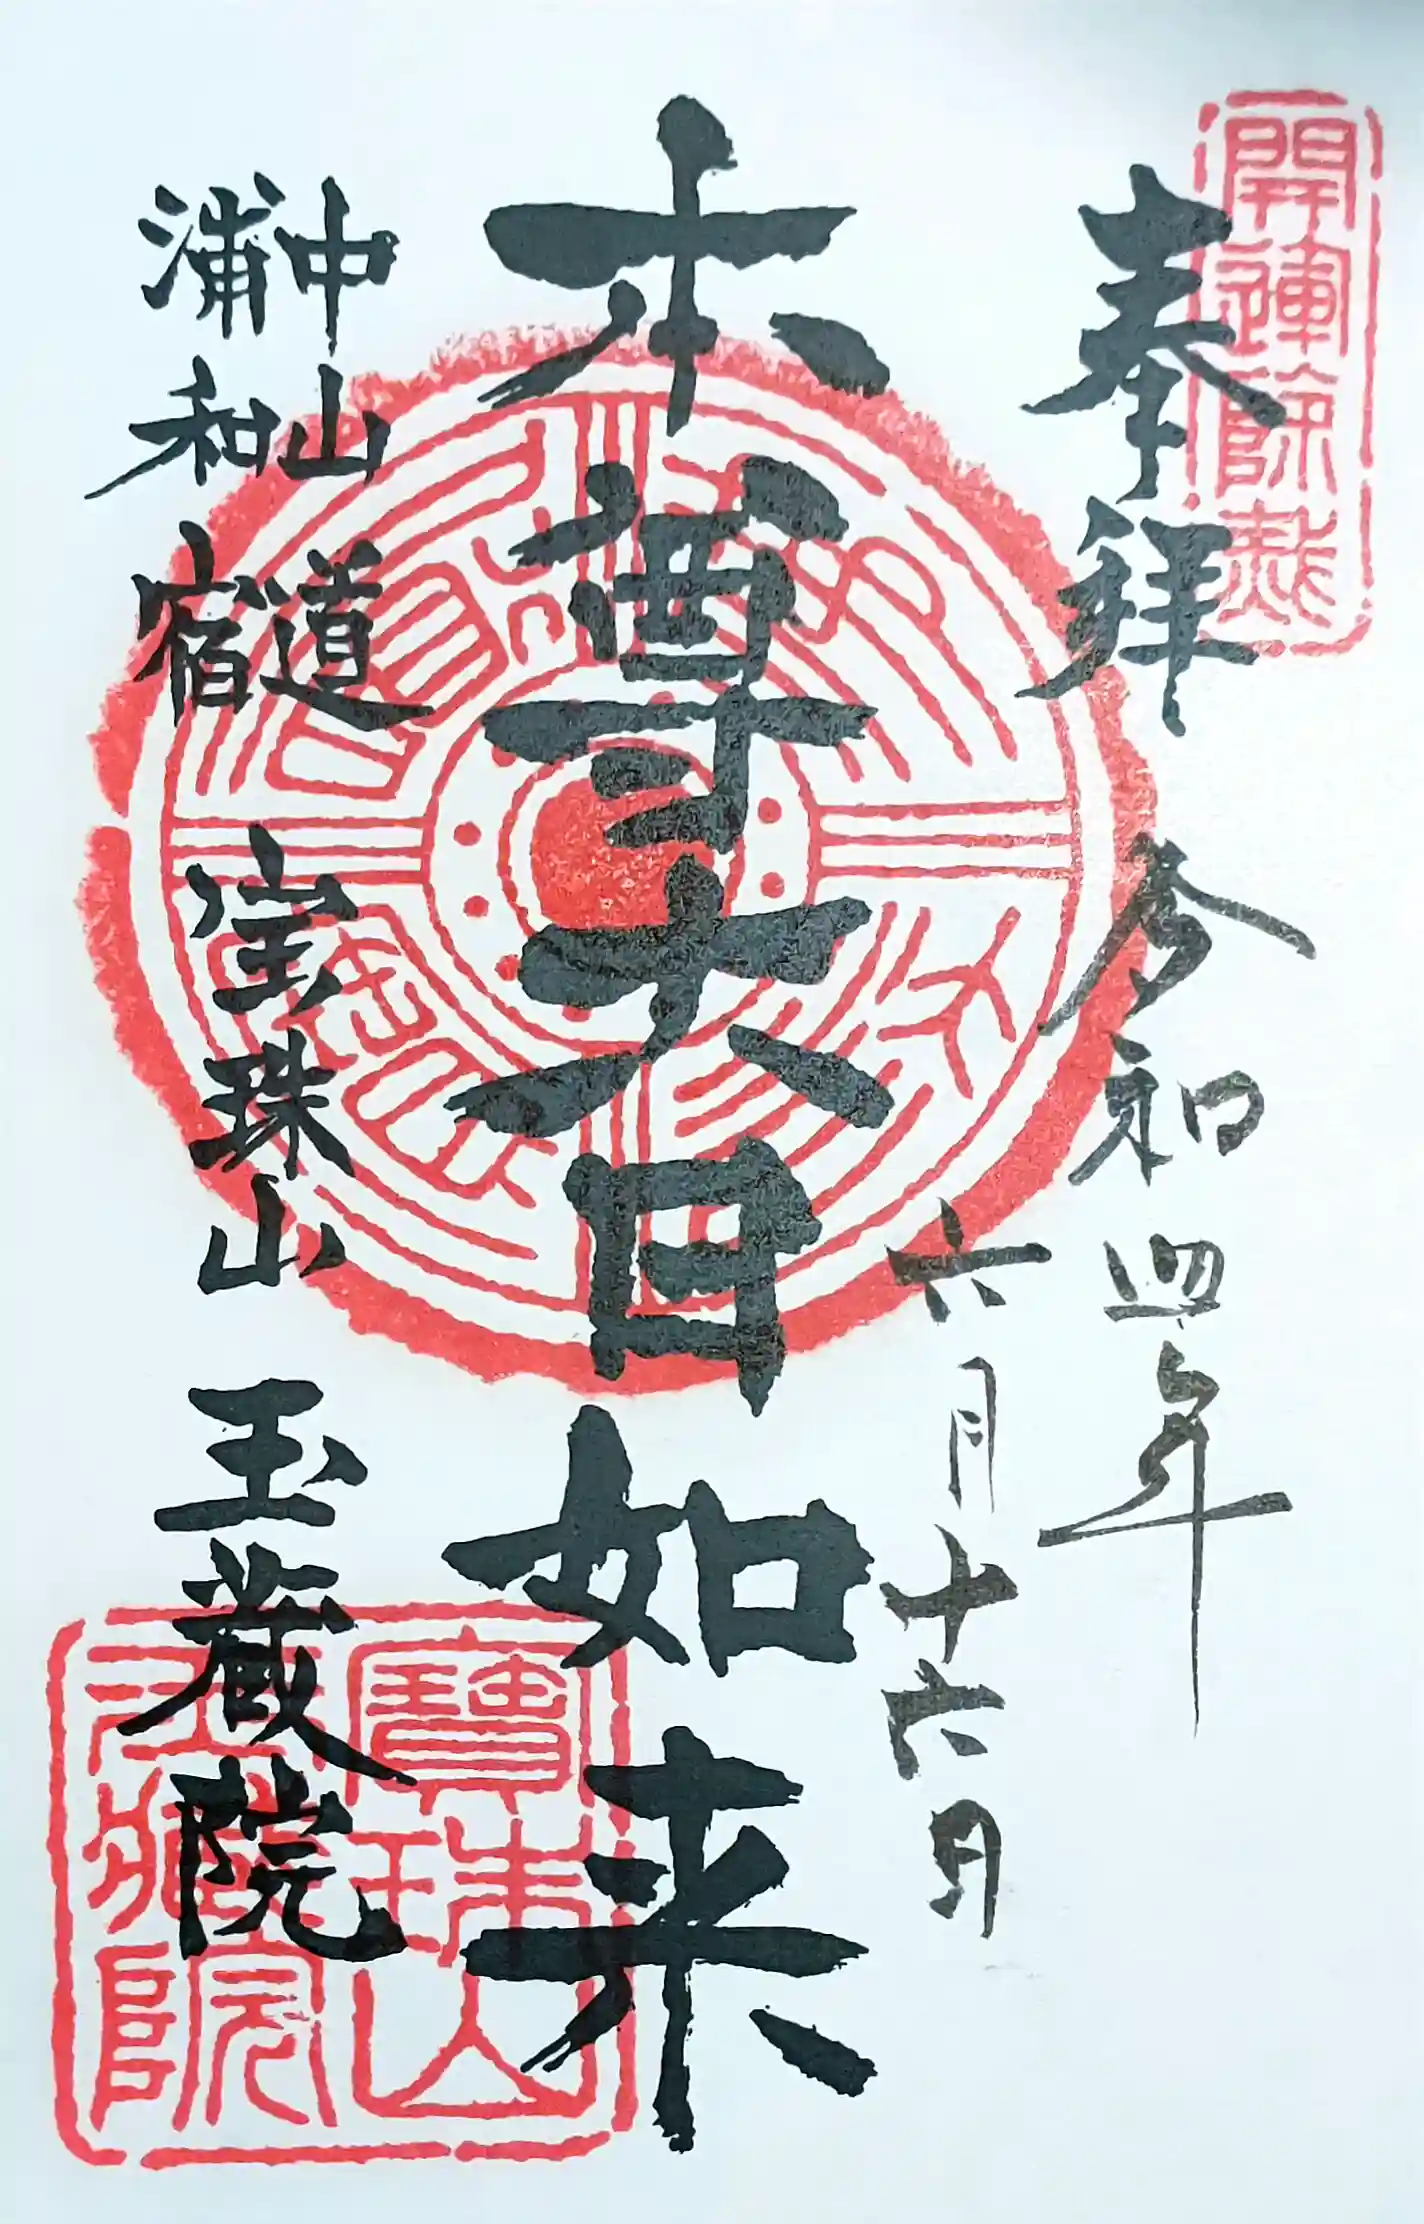 開運除災
奉拝
令和四年
六月十六日
本尊大日如来
中山道
浦和宿
宝珠山
玉蔵院
寶珠山
玉藏院